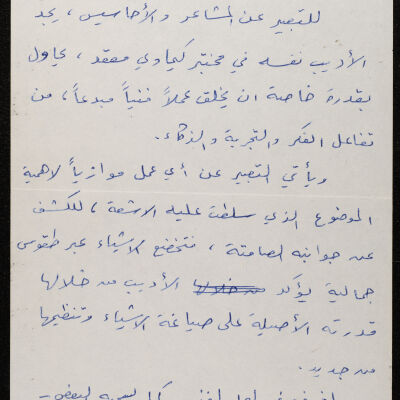 للتعبير عن المشاعر والأحاسيس، يجد
الأديب نفسه في مختبر كيماوي معقد، يحاول
بقدرة خاصة ان يخلق عملاً فنياً مبدعاً، من
تفاعل الفكر والتجربة والذكاء.
ويأتي التعبير عن أي عمل موازياً لاهمية
الموضوع الذي سلطت عليه الاشعة، للكشف
عن جوانبه الصامتة، فتخضع الاشياء عبر طقوس
جمالية يؤكد من خلالها الأديب من خلالها
قدرته الأصيلة على صياغة الاشياء وتنظيمها
من جديد.